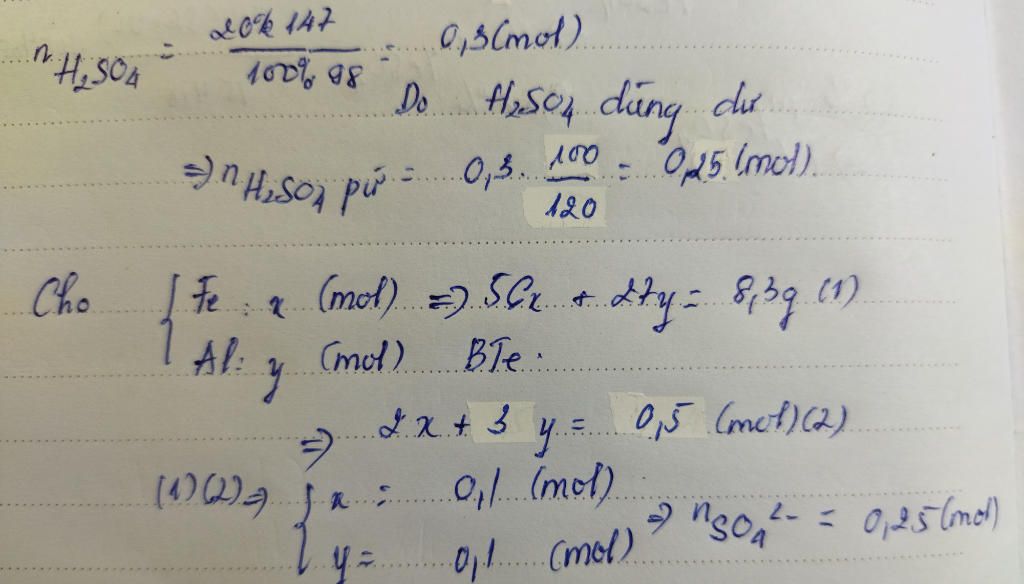 n H₂SO₄ = 20% 147 / 100% 98 = 0,3 (mol)
Do H₂SO₄ dùng dư
⇒ n H₂SO₄ pứ = 0,3 . 100 / 120 = 0,25 (mol)
Cho { Fe : x (mol) ⇒ 56x + 27y = 8,3g (1)
Al : y (mol) BTe :
⇒ 2x + 3y = 0,5 (mol) (2)
(1) (2) ⇒ { x = 0,1 (mol)
y = 0,1 (mol) ⇒ n SO₄²⁻ = 0,25 (mol)